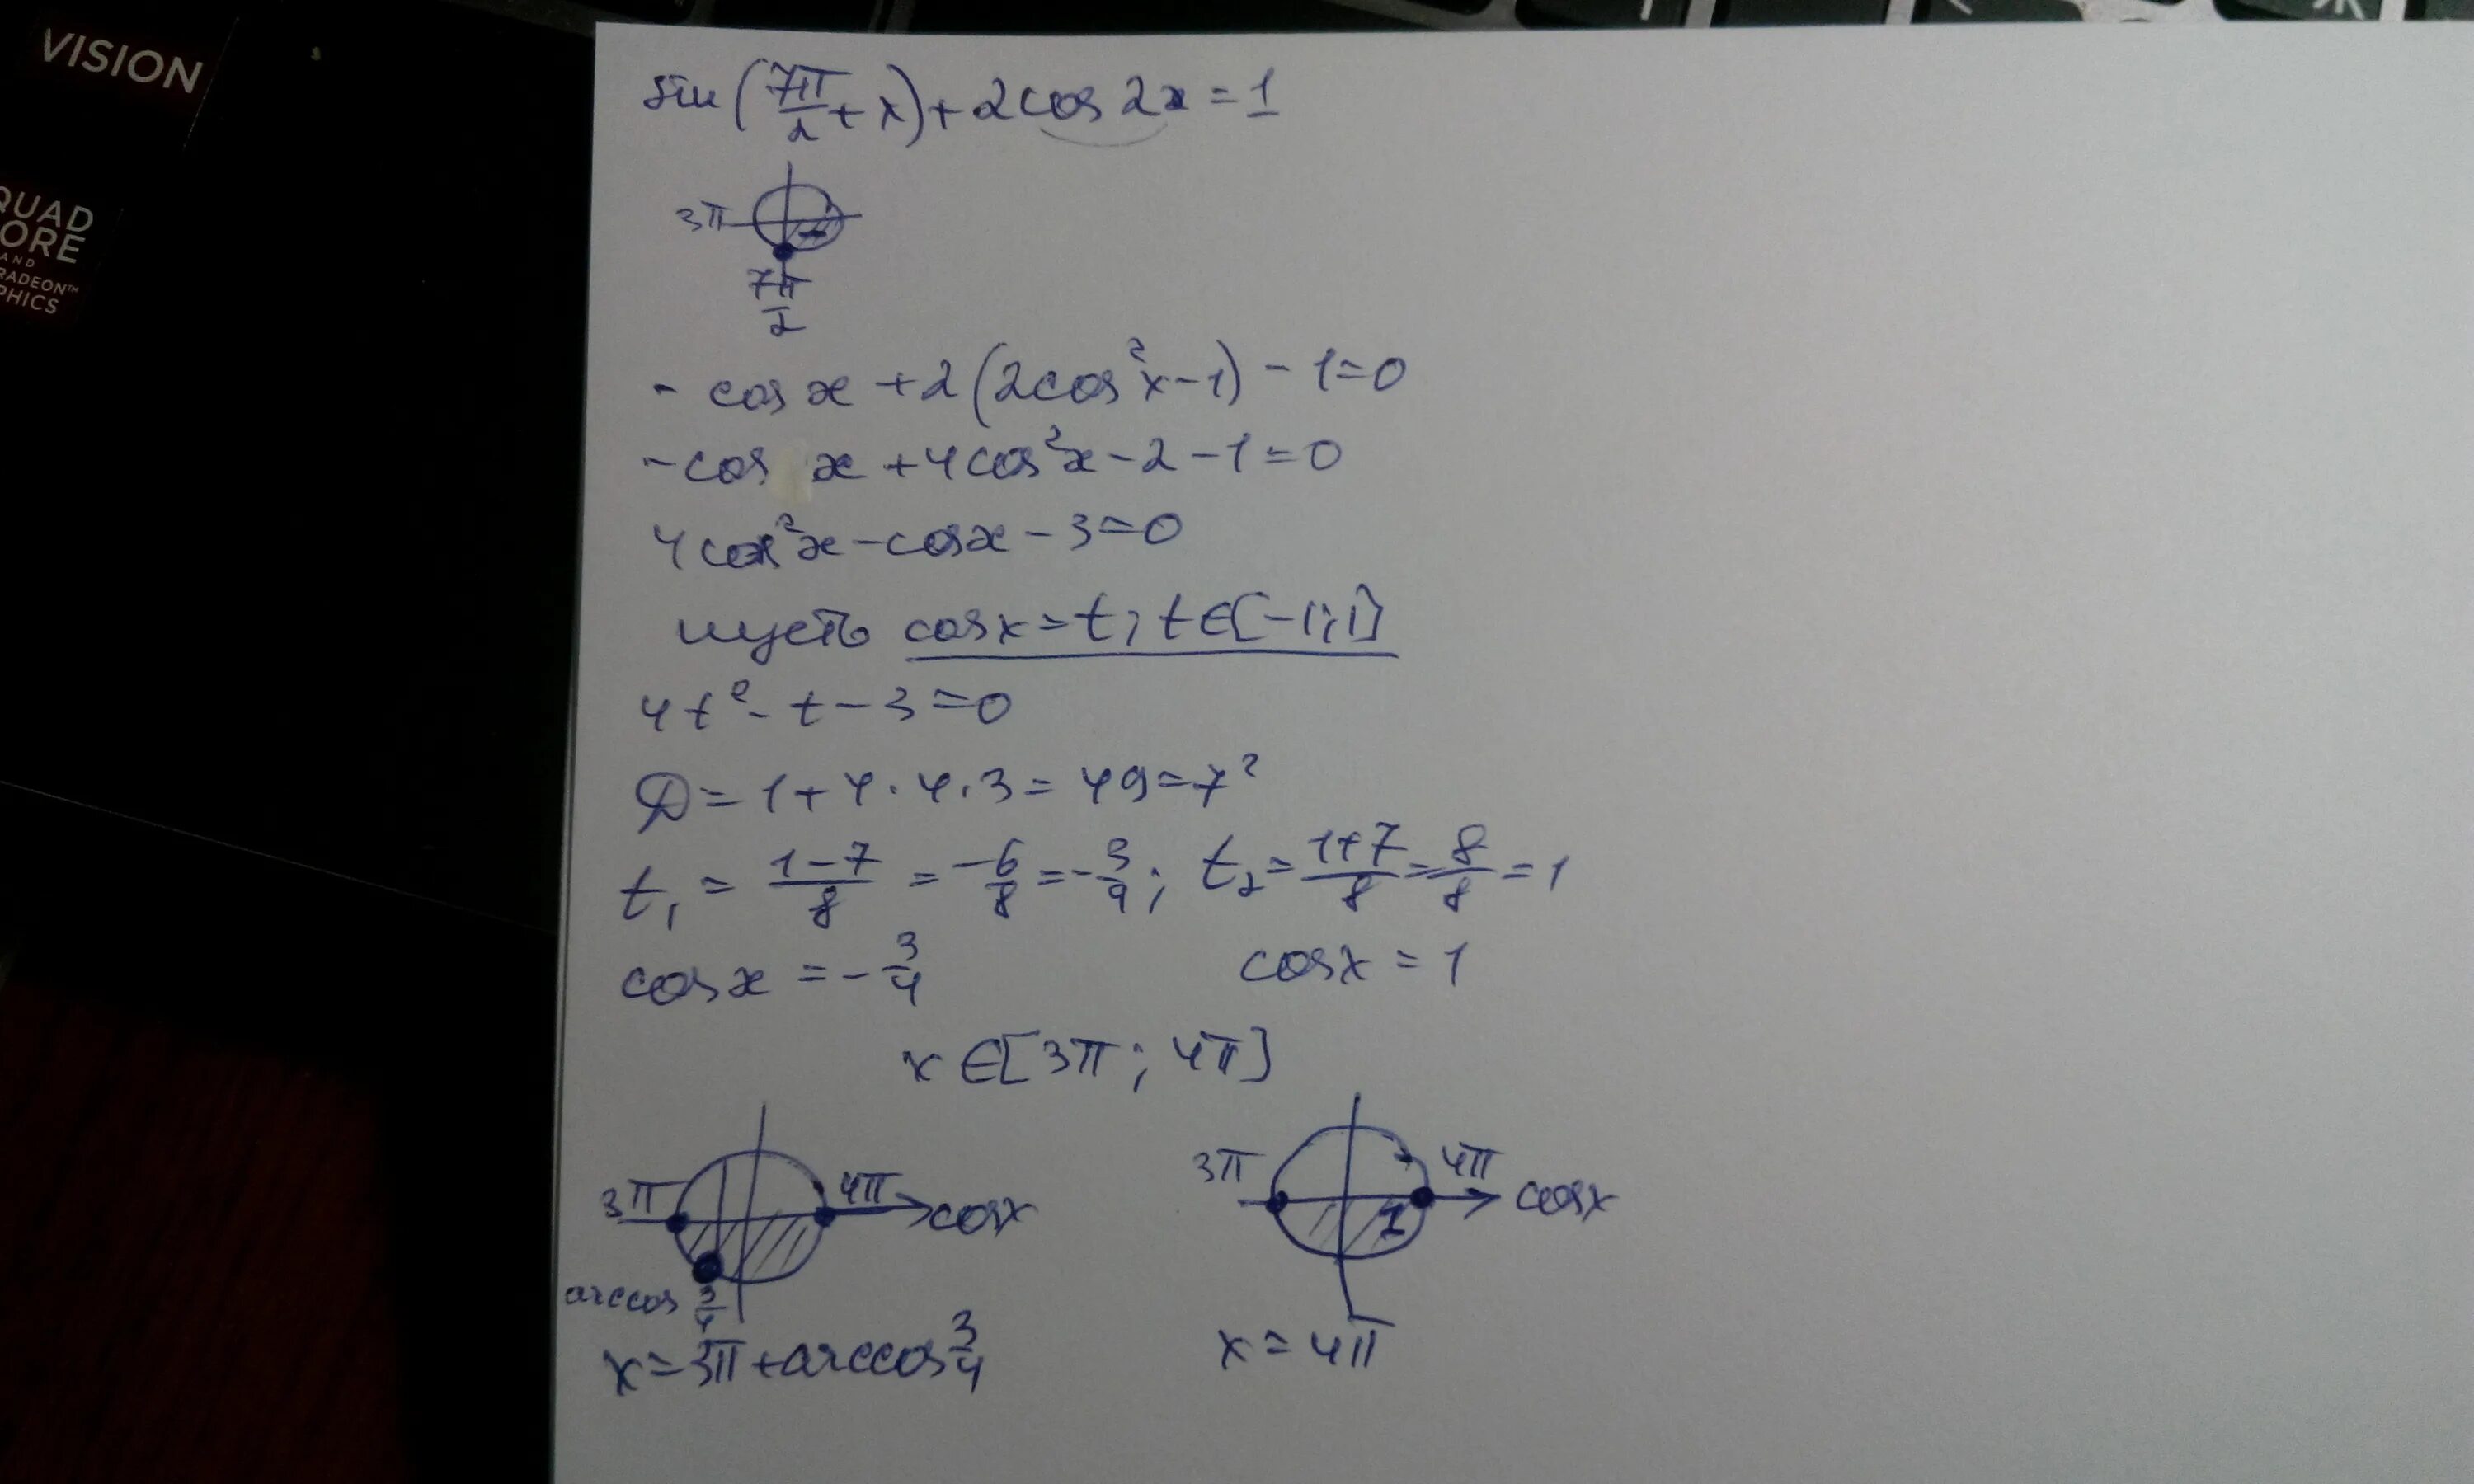 VISION
QUAD
CORE
AND
RADEON™
PHICS
sin(7π/2 + x) + 2cos 2x = 1
3π
7π/2
- cos x + 2(2cos²x - 1) - 1 = 0
- cos x + 4cos²x - 2 - 1 = 0
4cos²x - cosx - 3 = 0
пусть cosx = t, t ∈ [-1; 1]
4t² - t - 3 = 0
D = 1 + 4 · 4 · 3 = 49 = 7²
t₁ = (1-7)/8 = -6/8 = -3/4; t₂ = (1+7)/8 = 8/8 = 1
cosx = -3/4 cosx = 1
x ∈ [3π; 4π]
3π 4π cosx 3π 4π cosx
1
arccos 3/4
x = 3π + arccos 3/4 x = 4π